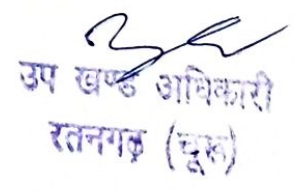 उप खण्ड अधिकारी
रतनगढ़ (चूरू)